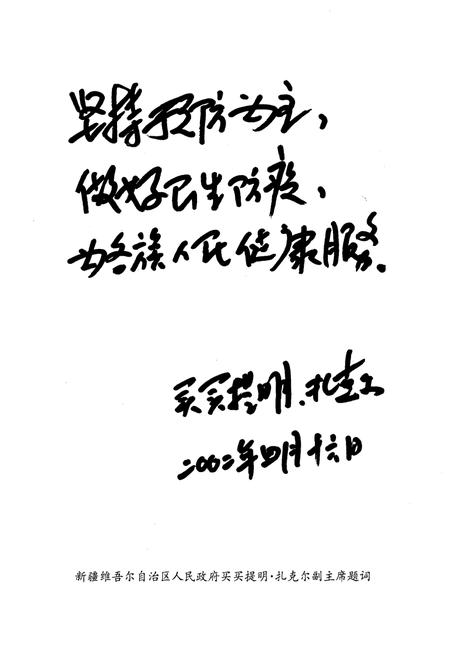 坚持预防为主，
做好卫生防疫，
为各族人民健康服务。
买买提明·扎克尔
二〇〇二年四月十六日
新疆维吾尔自治区人民政府买买提明·扎克尔副主席题词